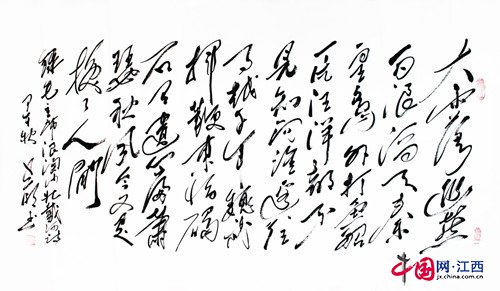 大雨落幽燕
白浪滔天秦
皇岛外打鱼船
一片汪洋都不
见知向谁边往
事越千年魏武
挥鞭东临碣
石有遗篇萧
瑟秋风今又是
换了人间
录毛主席浪淘沙北戴河诗
秋
书
中国网·江西
jx.china.com.cn